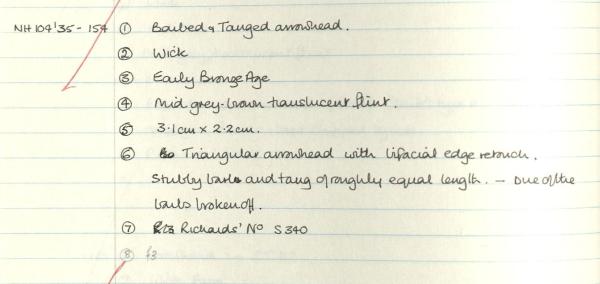 NH104'35-154 ① Barbed & Tanged arrowhead.
② Wick
③ Early Bronze Age
④ Mid grey-brown translucent flint.
⑤ 3.1cm x 2.2cm.
⑥ Triangular arrowhead with bifacial edge retouch.
Stubby barbs and tang of roughly equal length. - One of the
barbs broken off.
⑦ Richards' No S340
⑧ f3